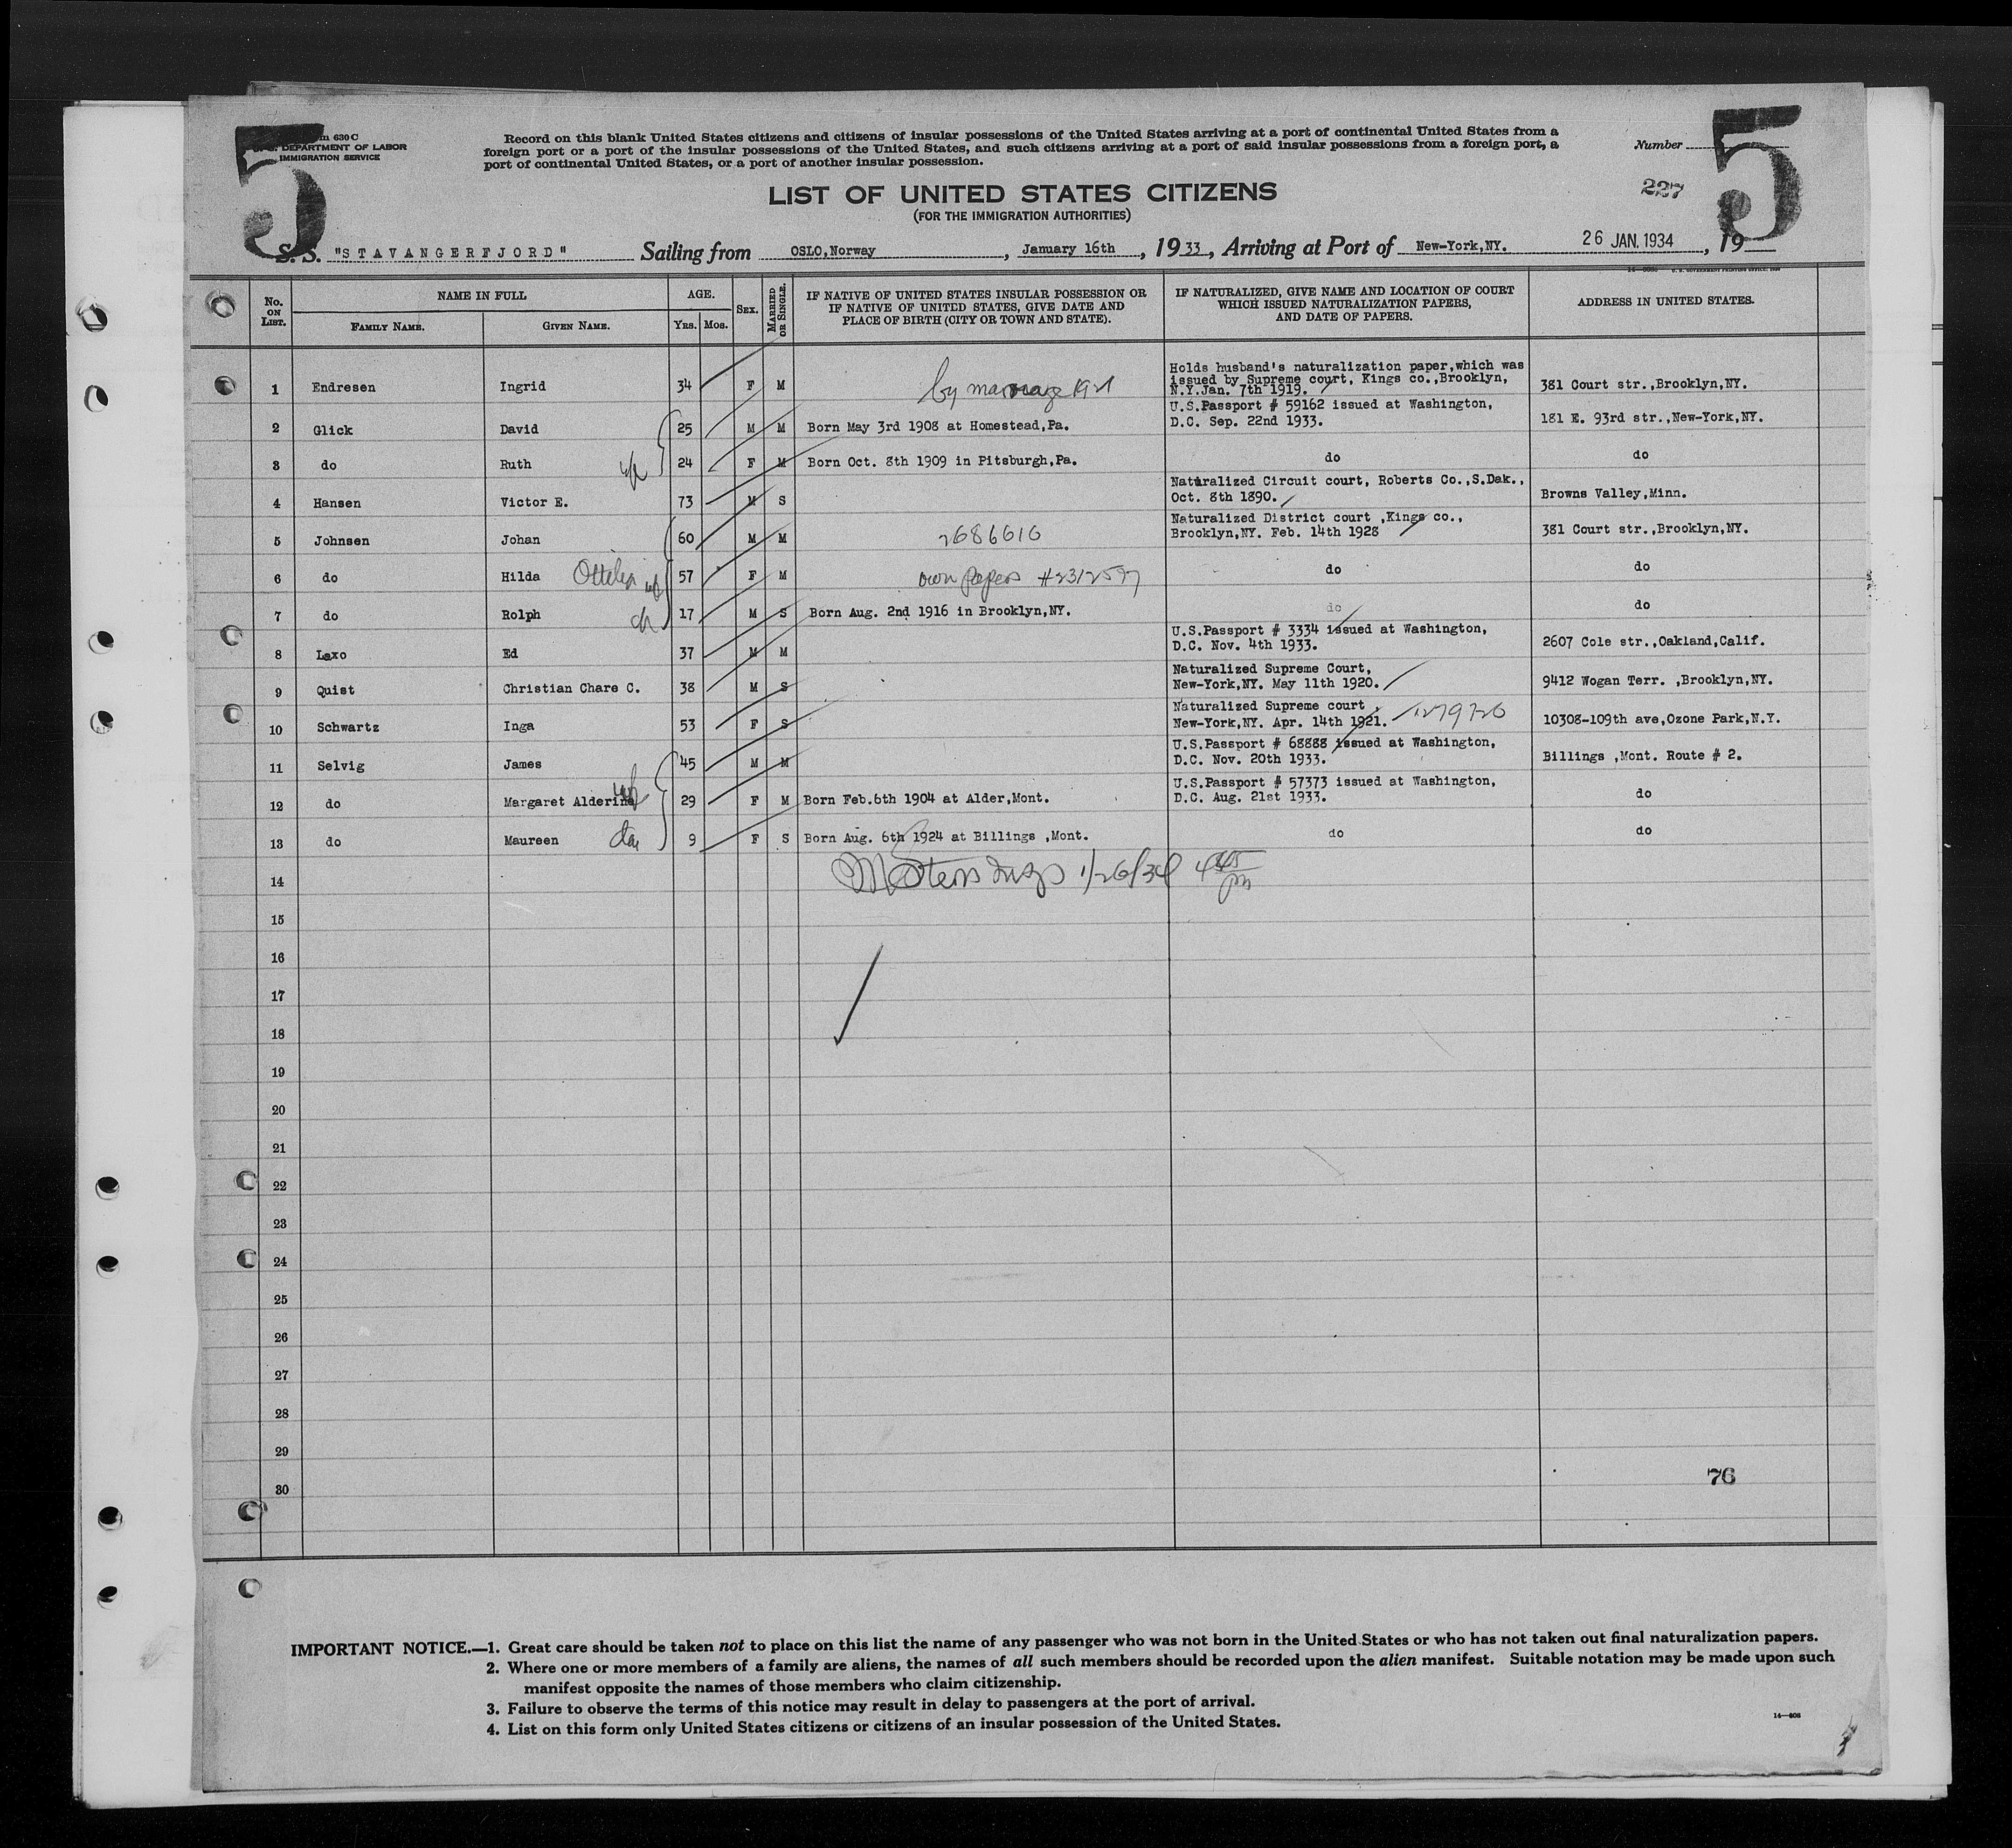 5
5
630 C
DEPARTMENT OF LABOR
IMMIGRATION SERVICE
Record on this blank United States citizens and citizens of insular possessions of the United States arriving at a port of continental United States from a
foreign port or a port of the insular possessions of the United States, and such citizens arriving at a port of said insular possessions from a foreign port, a
port of continental United States, or a port of another insular possession.
Number
227
LIST OF UNITED STATES CITIZENS
(FOR THE IMMIGRATION AUTHORITIES)
S. S. "STAVANGERFJORD" Sailing from OSLO,Norway , January 16th , 1933, Arriving at Port of New-York,NY. 26 JAN. 1934 , 19
No. ON LIST.
NAME IN FULL
FAMILY NAME. GIVEN NAME.
AGE.
YRS. MOS.
SEX.
MARRIED OR SINGLE.
IF NATIVE OF UNITED STATES INSULAR POSSESSION OR
IF NATIVE OF UNITED STATES, GIVE DATE AND
PLACE OF BIRTH (CITY OR TOWN AND STATE).
IF NATURALIZED, GIVE NAME AND LOCATION OF COURT
WHICH ISSUED NATURALIZATION PAPERS,
AND DATE OF PAPERS.
ADDRESS IN UNITED STATES.
1 Endresen Ingrid 34 F M by marriage 1921
Holds husband's naturalization paper,which was
issued by Supreme court, Kings co.,Brooklyn,
N.Y.Jan. 7th 1919.
381 Court str.,Brooklyn,NY.
2 Glick David 25 M M Born May 3rd 1908 at Homestead,Pa.
U.S.Passport # 59162 issued at Washington,
D.C. Sep. 22nd 1933.
181 E. 93rd str.,New-York,NY.
3 do Ruth wf 24 F M Born Oct. 8th 1909 in Pitsburgh,Pa. do do
4 Hansen Victor E. 73 M S
Naturalized Circuit court, Roberts Co.,S.Dak.,
Oct. 8th 1890.
Browns Valley,Minn.
5 Johnsen Johan 60 M M 2686610
Naturalized District court ,Kings co.,
Brooklyn,NY. Feb. 14th 1928
381 Court str.,Brooklyn,NY.
6 do Hilda wf 57 F M own papers #2312597 do do
7 do Rolph ch 17 M S Born Aug. 2nd 1916 in Brooklyn,NY. do do
8 Laxo Ed 37 M M
U.S.Passport # 3334 issued at Washington,
D.C. Nov. 4th 1933.
2607 Cole str.,Oakland,Calif.
9 Quist Christian Chare C. 38 M S
Naturalized Supreme Court,
New-York,NY. May 11th 1920.
9412 Wogan Terr. ,Brooklyn,NY.
10 Schwartz Inga 53 F S
Naturalized Supreme court
New-York,NY. Apr. 14th 1921.
10308-109th ave,Ozone Park,N.Y.
11 Selvig James 45 M M
U.S.Passport # 68888 issued at Washington,
D.C. Nov. 20th 1933.
Billings ,Mont. Route # 2.
12 do Margaret Alderine wf 29 F M Born Feb.6th 1904 at Alder,Mont.
U.S.Passport # 57373 issued at Washington,
D.C. Aug. 21st 1933.
do
13 do Maureen dau 9 F S Born Aug. 6th 1924 at Billings ,Mont. do do
14 1/26/34 4 45 pm
15
16
17
18
19
20
21
22
23
24
25
26
27
28
29
30
76
IMPORTANT NOTICE.—1. Great care should be taken not to place on this list the name of any passenger who was not born in the United States or who has not taken out final naturalization papers.
2. Where one or more members of a family are aliens, the names of all such members should be recorded upon the alien manifest. Suitable notation may be made upon such
manifest opposite the names of those members who claim citizenship.
3. Failure to observe the terms of this notice may result in delay to passengers at the port of arrival.
4. List on this form only United States citizens or citizens of an insular possession of the United States.
14—608